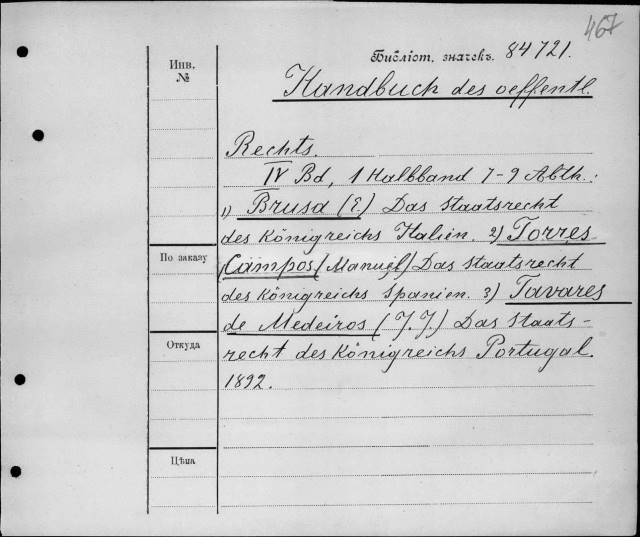 467
Библіот. значекъ. 84721.
Инв.
№
Handbuch des oeffentl.
Rechts.
IV Bd, 1 Halbband 7-9 Abth.:
1) Brusa (E.) Das Staatsrecht
des Königreichs Italien. 2) Torres
По заказу
Campos (Manuel) Das Staatsrecht
des Königreichs Spanien. 3) Tavares
de Medeiros (J. J.) Das Staats-
Откуда
recht des Königreichs Portugal.
1892.
Цѣна